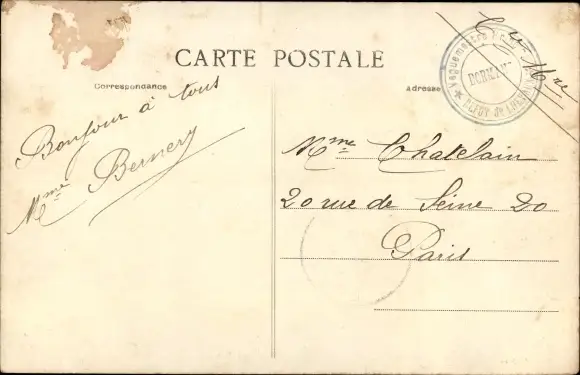 CARTE POSTALE
Correspondance
adresse
Bonjour à tous
Mme Bernery
Vaguemestre
DÉPÔT de
Mme Chatelain
20 rue de Seine 20
Paris